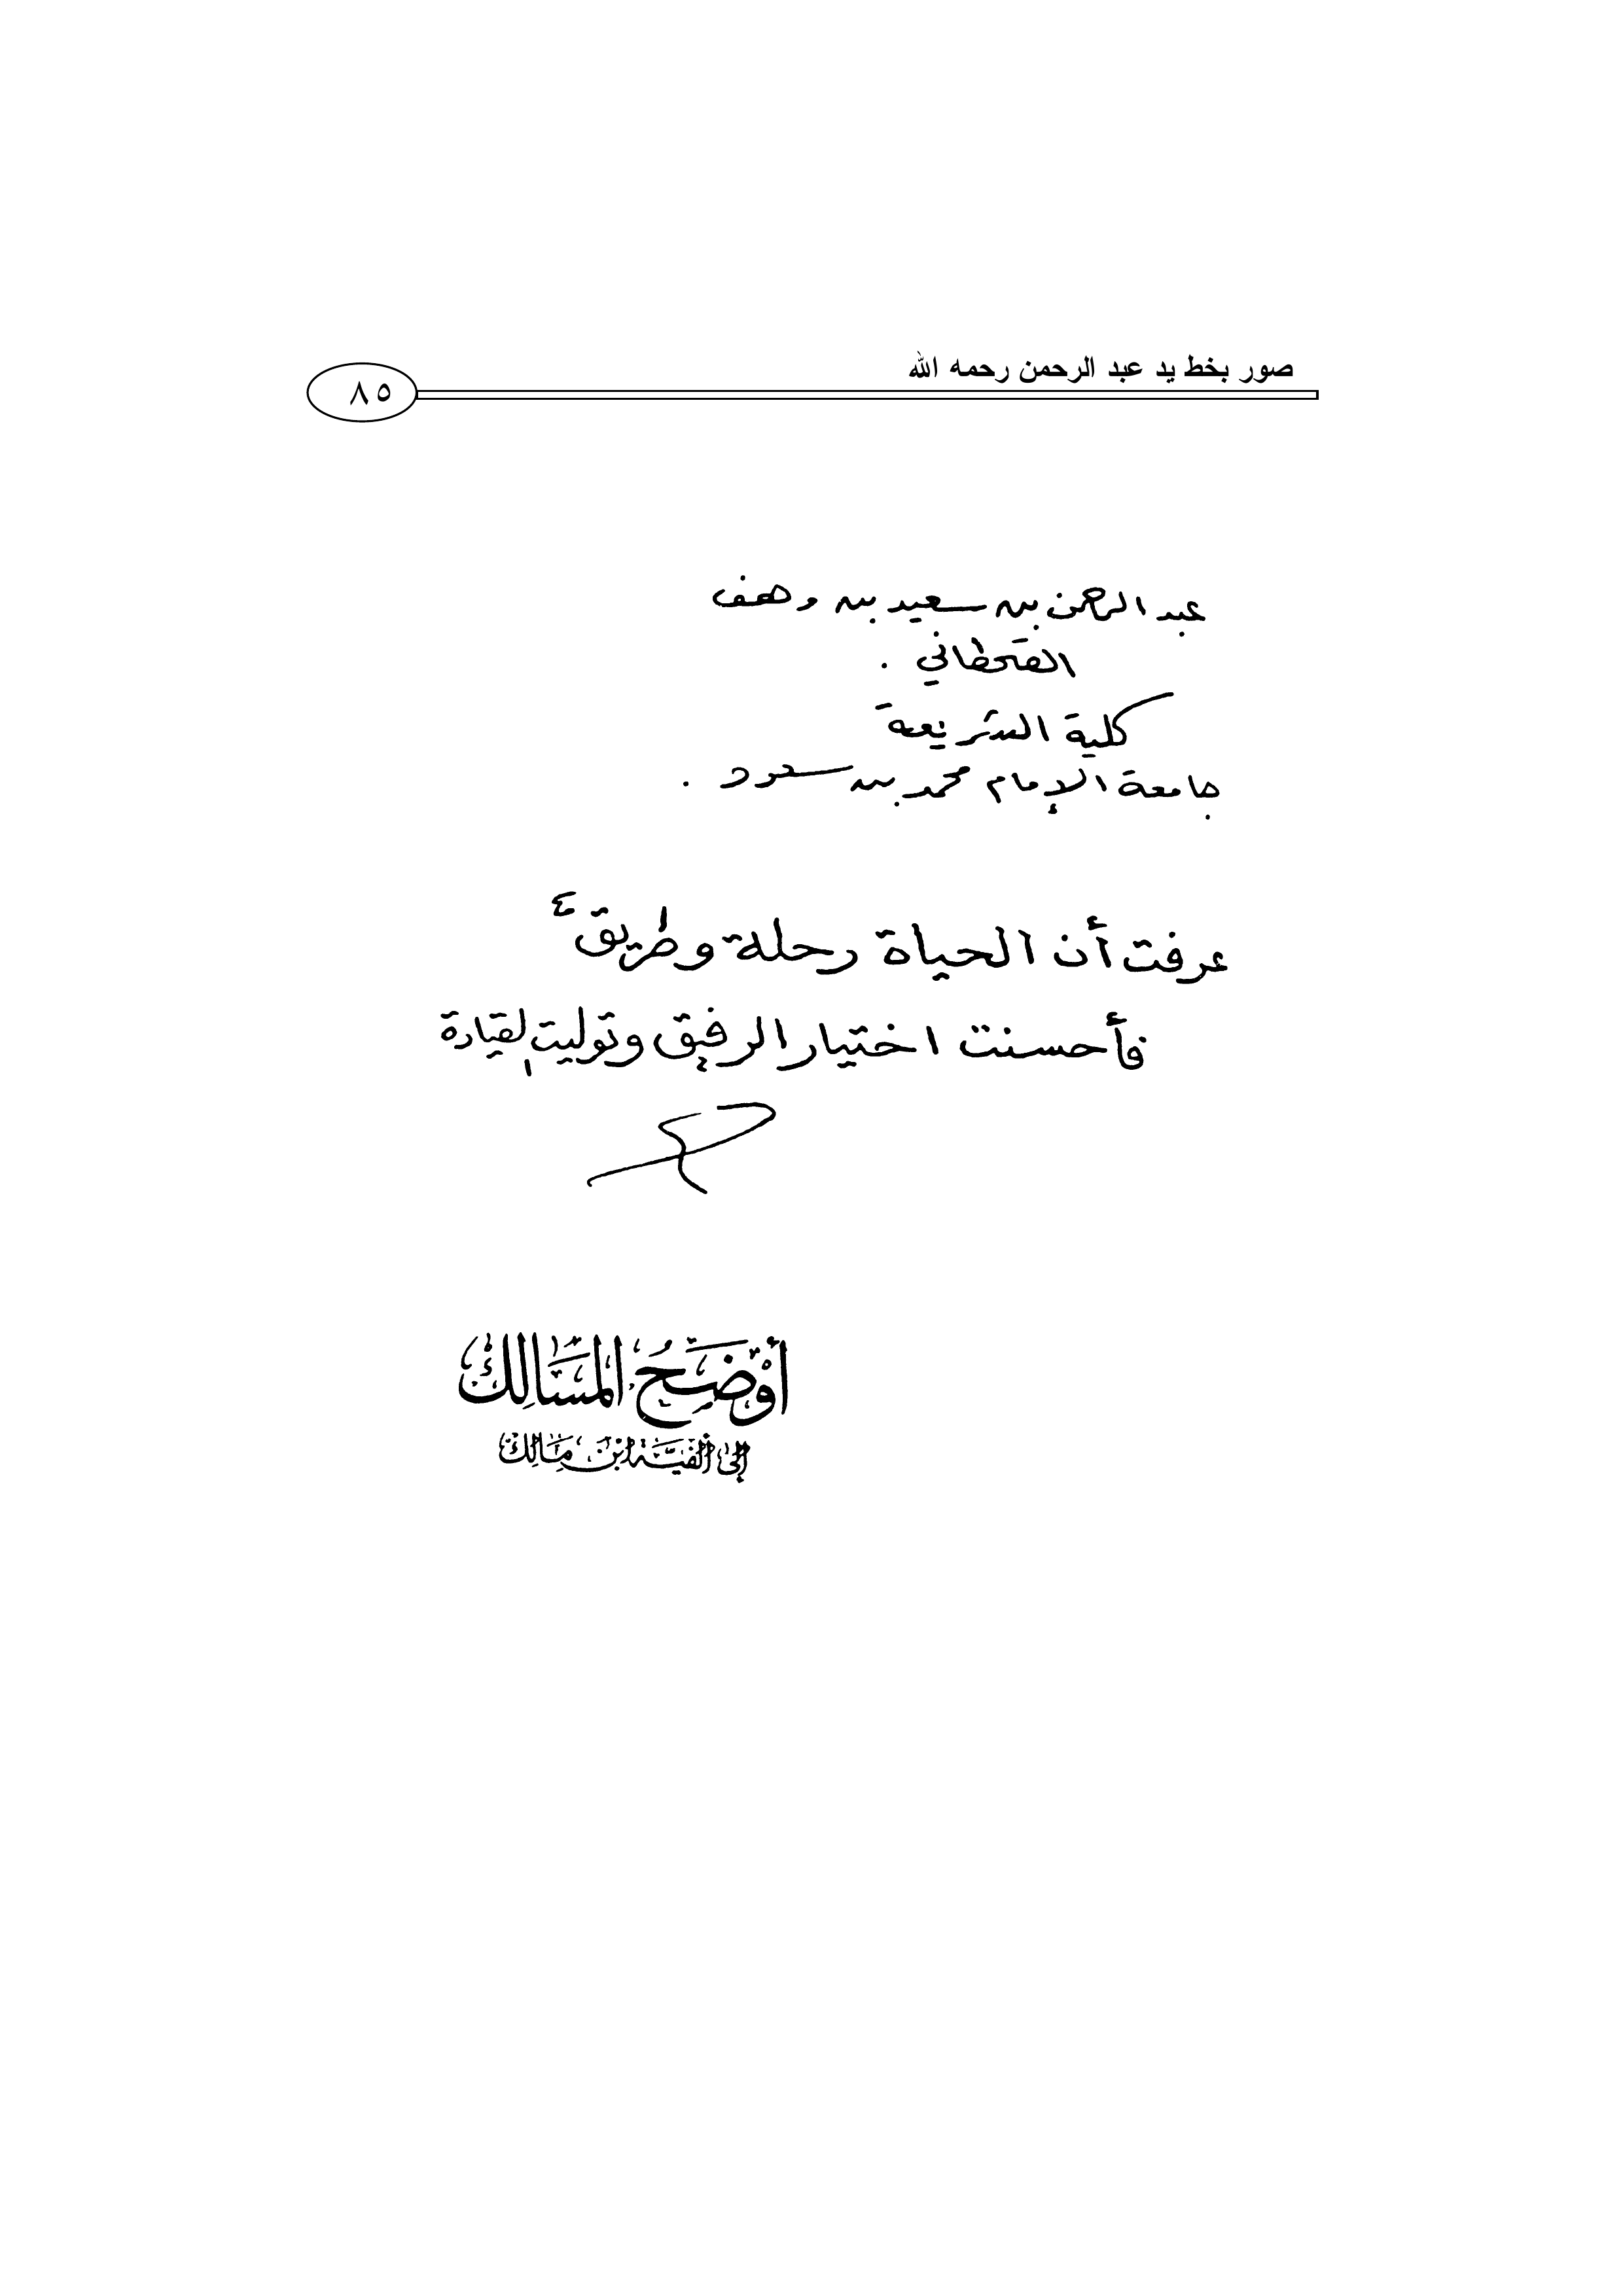 صور بخط يد عبد الرحمن رحمه الله
٨٥
عبد الرحمن بن سعيد بن وهف
القحطاني .
كلية الشريعة
جامعة الإمام محمد بن سعود .
عرفت أن الحياة رحلة وطريق
فأحسنت اختيار الرفيق وتوليت القيادة
أَوْضَحُ المَسَالِك
إلى ألفيَّة ابن مَالِك